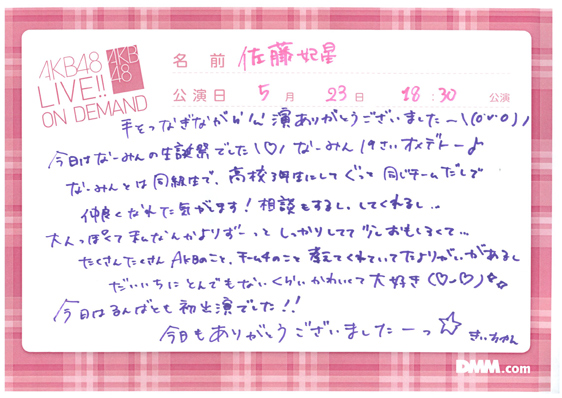 AKB48
LIVE!!
ON DEMAND
AKB
48
名前 佐藤妃星
公演日 5月 23日 18:30 公演
手をつなぎながら公演ありがとうございました〜\(o'v'o)/
今日はなーみんの生誕祭でした\♡/ なーみん19さいオメデトー♪
なーみんとは同級生で、高校3年生にしてぐっと同じチームだしで
仲良くなれた気がします!相談もするし、してくれるし..
大人っぽくて私なんかよりずーっとしっかりしてて少しおもしろくて...
たくさんたくさんAKBのこと、チームのこと教えてくれていてたよりがいがあるし
だいいちにとんでもないくらいかわいくて大好き(♡-♡)
今日はるんばとも初出演でした!!
今日もありがとうございましたーっ☆ きぃちゃん
DMM.com